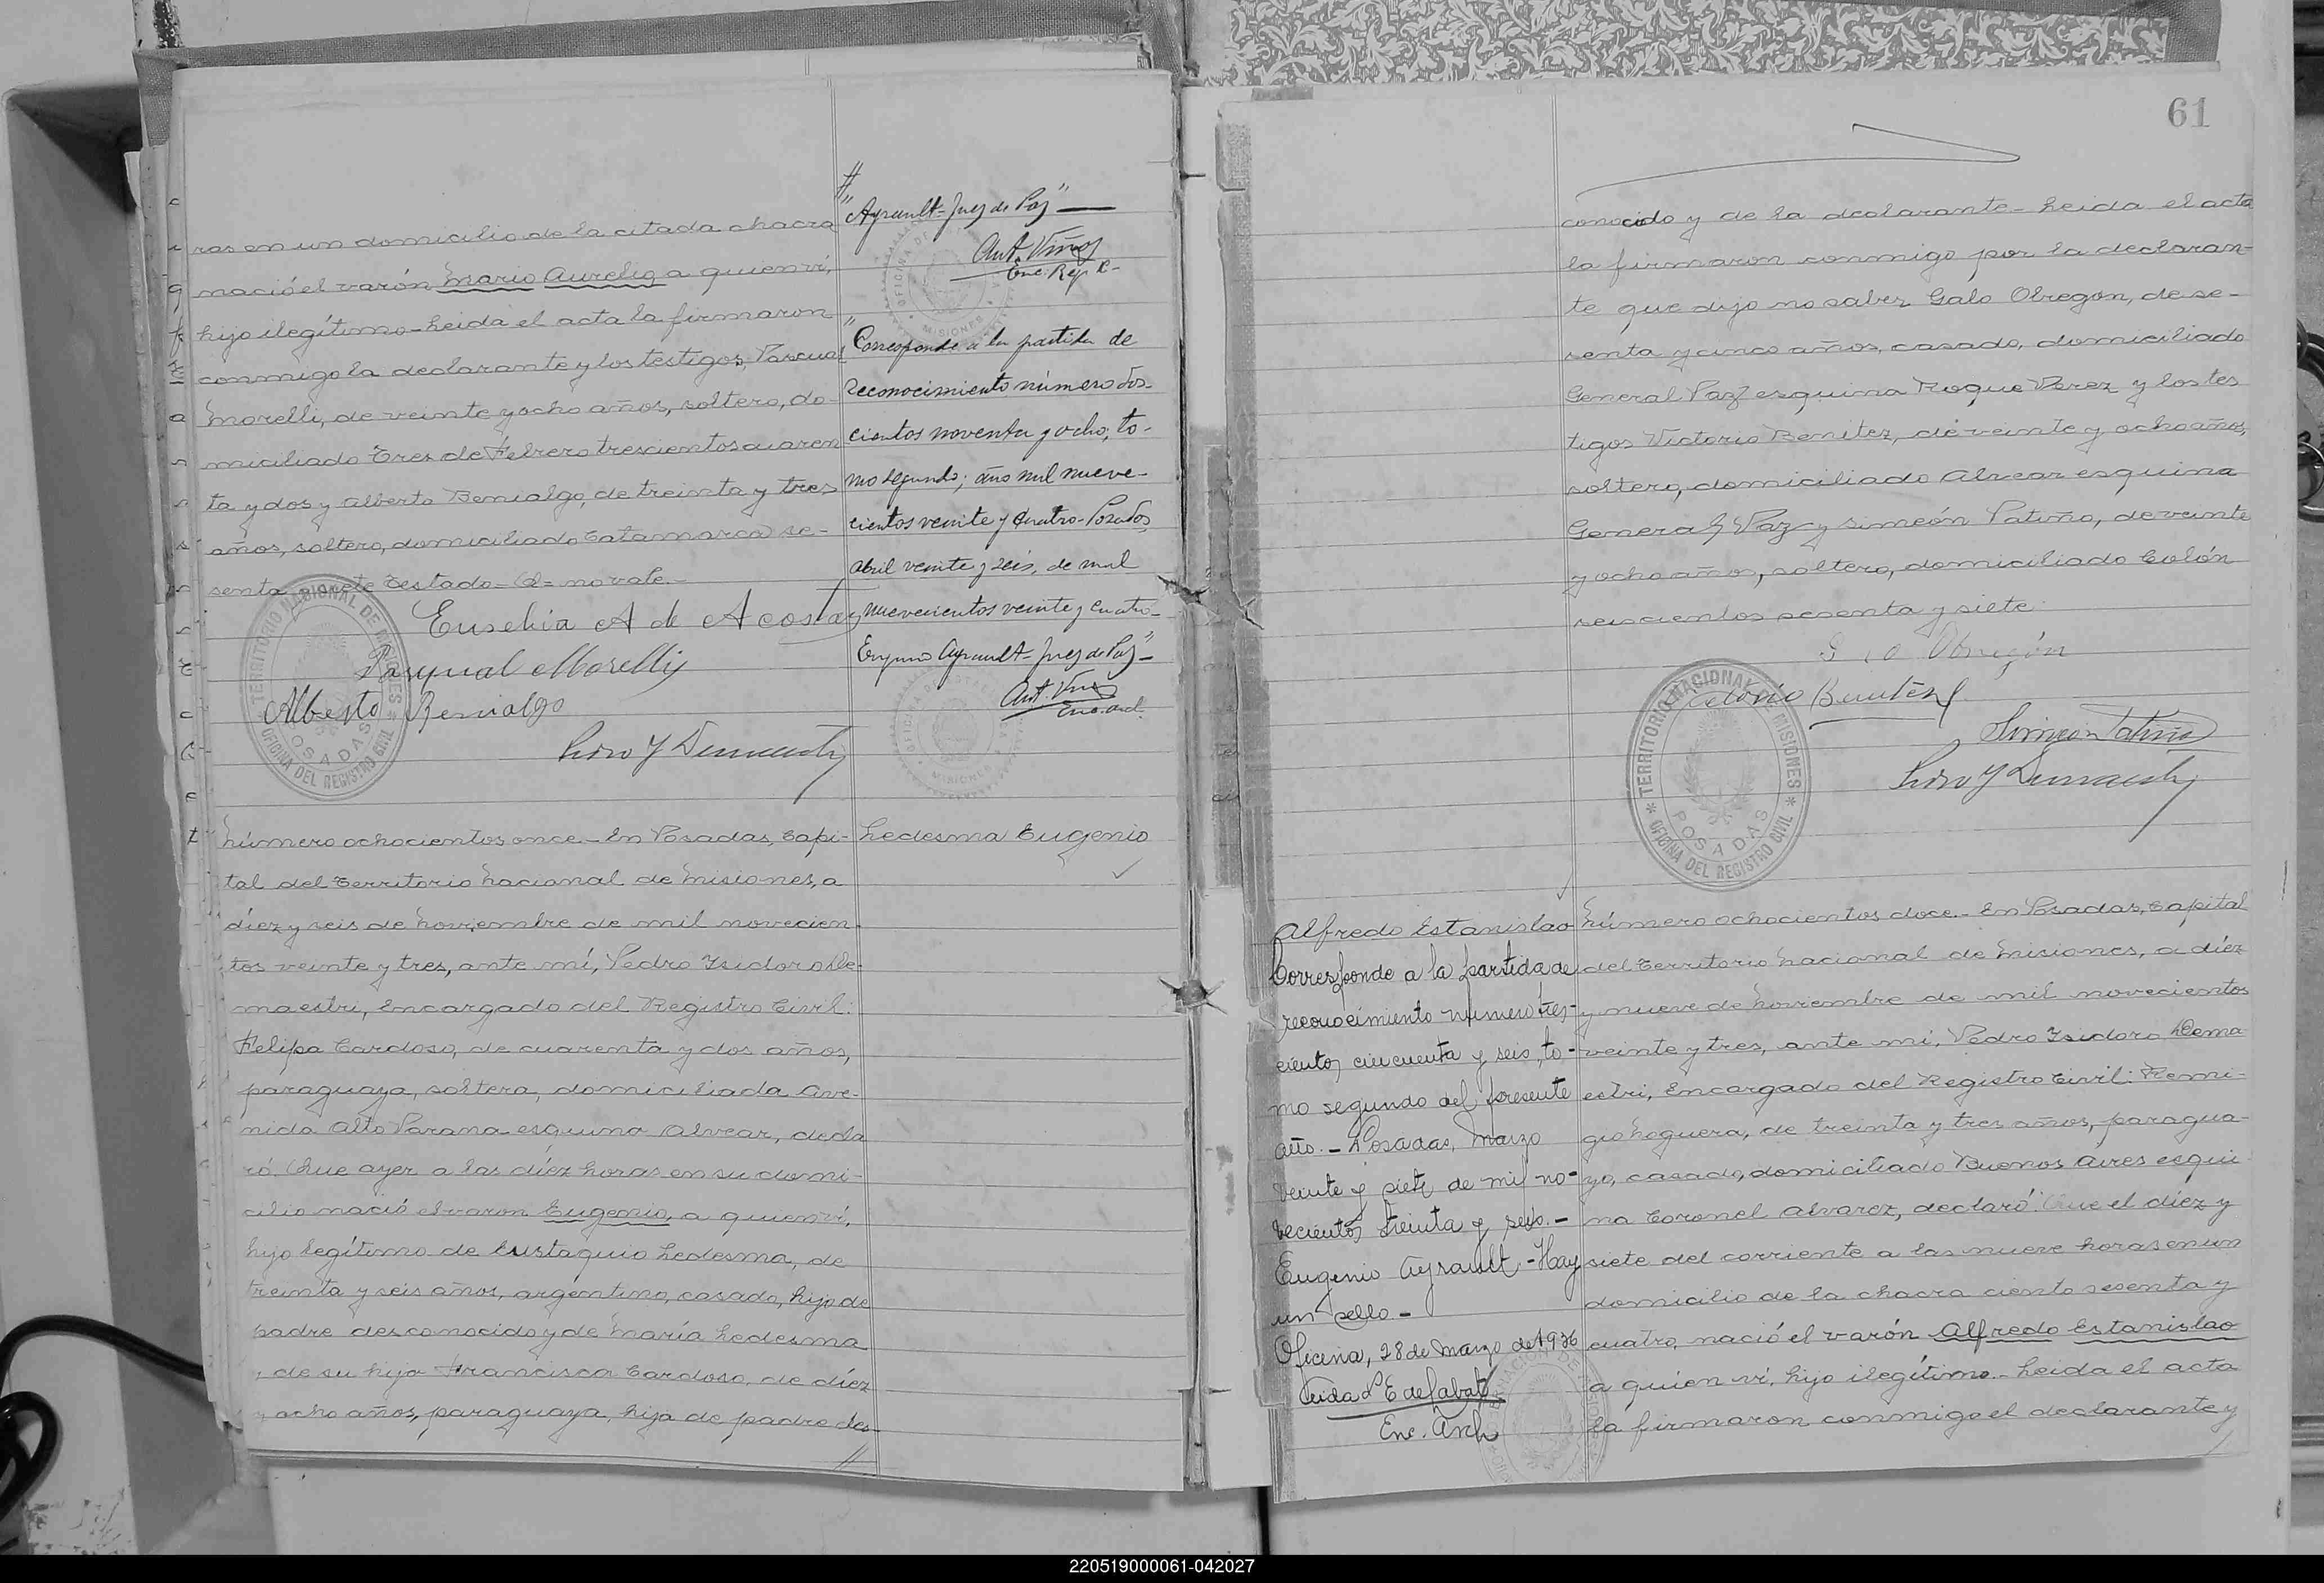 ras en un domicilio de la citada chacra
nació el varón Mario Aurelio a quien ví,
hijo ilegítimo - Leída el acta la firmaron
conmigo la declarante y los testigos, Pascual
Morelli, de veinte y ocho años, soltero, do-
miciliado Tres de Febrero trescientos cuaren
ta y dos y Alberto Benialgo, de treinta y tres
años, soltero, domiciliado Catamarca se-
senta y siete Testado - Q = no vale -
Eusebia A de Acosta
Pasqual Morelli
Alberto Benialgo
TERRITORIO NACIONAL DE MISIONES
POSADAS
OFICINA DEL REGISTRO CIVIL
Número ochocientos once - En Posadas, Capi-
tal del Territorio Nacional de Misiones, a
diez y seis de Noviembre de mil novecien-
tos veinte y tres, ante mí, Pedro Isidoro De-
maestri, Encargado del Registro Civil:
Felipa Cardoso, de cuarenta y dos años,
paraguaya, soltera, domiciliada Ave-
nida Alto Parana esquina Alvear, decla
ró: Que ayer a las diez horas en su domi-
cilio nació el varon Eugenio, a quien ví,
hijo legítimo de Eustaquio Ledesma, de
treinta y seis años, argentino, casado, hijo de
padre desconocido y de María Ledesma
y de su hija Francisca Cardoso, de diez
y ocho años, paraguaya, hija de padre des-
//
#
"Ayrault = Juez de Paz"
Ant. Viñas
Enc. Reg. C-
"Corresponde a la partida de
reconocimiento número dos-
cientos noventa y ocho; to-
mo segundo; año mil nueve-
cientos veinte y cuatro - Posadas
abril veinte y seis, de mil
nuevecientos veinte y cuatro -
Eugenio Ayrault = Juez de Paz" -
MISIONES
Ledesma Eugenio
61
conocido y de la declarante - Leida el acta
la firmaron conmigo por la declaran-
te que dijo no saber Galo Obregon, de se-
senta y cinco años, casado, domiciliado
General Paz esquina Roque Perez y los tes
tigos Victorio Benitez, de veinte y ocho años,
soltero, domiciliado Alvear esquina
General Paz y Simeón Patiño, de veinte
y ocho años, soltero, domiciliado Colón
seiscientos sesenta y siete
Obregón
Simeon Patiño
TERRITORIO NACIONAL DE MISIONES
POSADAS
OFICINA DEL REGISTRO CIVIL
Alfredo Estanislao
Corresponde a la partida de
reconocimiento número tres-
cientos cincuenta y seis, to-
mo segundo del presente
año. - Posadas, Marzo
veinte y siete de mil no-
vecientos treinta y seis. -
Eugenio Ayrault - Hay
un sello. -
Oficina, 28 de Marzo de 1936
Enc. Arch
Número ochocientos doce. - En Posadas, Capital
del Territorio Nacional de Misiones, a diez
y nueve de Noviembre de mil novecientos
veinte y tres, ante mi, Pedro Isidoro Dema
estri, Encargado del Registro Civil: Remi-
gio Noguera, de treinta y tres años, paragua-
yo, casado, domiciliado Buenos Aires esqui
na Coronel Alvarez, declaró: Que el diez y
siete del corriente a las nueve horas en un
domicilio de la chacra ciento sesenta y
cuatro, nació el varón Alfredo Estanislao
a quien ví, hijo ilegítimo. - Leida el acta
la firmaron conmigo el declarante y
220519000061-042027